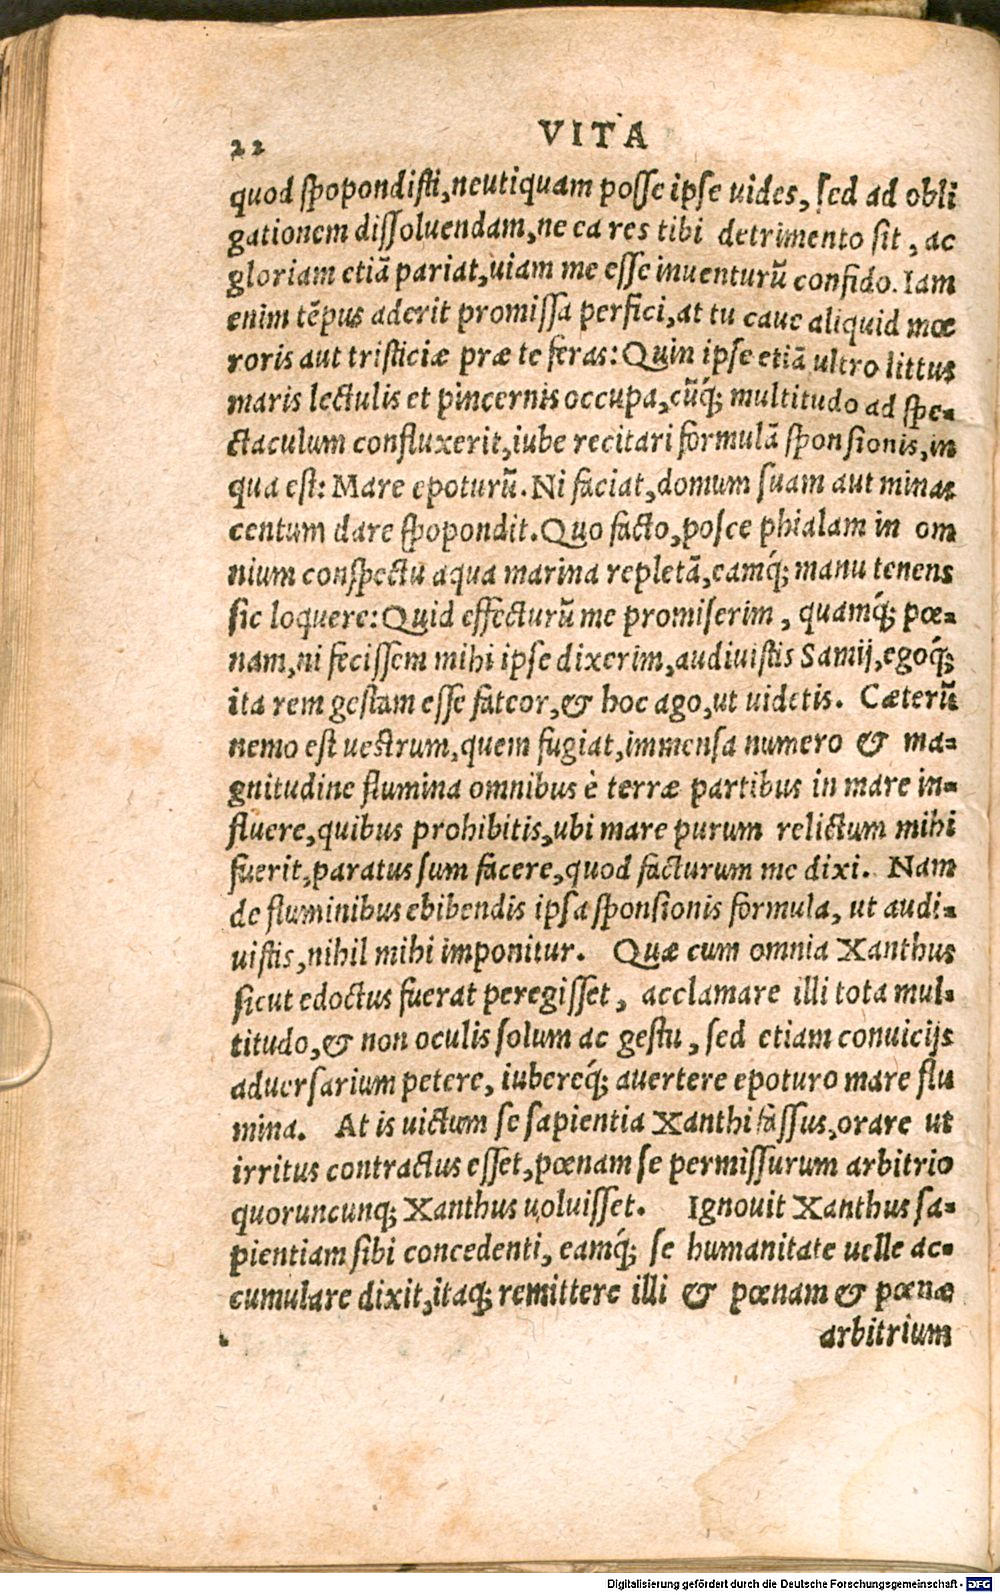 22 VITA
quod spopondisti,neutiquam posse ipse uides, sed ad obli
gationem dissoluendam,ne ea res tibi detrimento sit, ac
gloriam etiā pariat,uiam me esse inuenturū confido. Iam
enim tēpus aderit promissa perfici,at tu caue aliquid mœ
roris aut tristiciæ præ te feras: Quin ipse etiā ultro littus
maris lectulis et pincernis occupa,cūq́; multitudo ad spe-
ctaculum confluxerit,iube recitari formulā sponsionis,in
qua est: Mare epoturū. Ni faciat,domum suam aut minas
centum dare spopondit. Quo facto,posce phialam in om
nium conspectu aqua marina repletā,eamq́; manu tenens
sic loquere: Quid effecturū me promiserim, quamq́; pœ-
nam,ni fecissem mihi ipse dixerim,audiuistis Samij,egoq́;
ita rem gestam esse fateor,& hoc ago,ut uidetis. Cæterū
nemo est uestrum,quem fugiat,immensa numero & ma-
gnitudine flumina omnibus è terræ partibus in mare in-
fluere,quibus prohibitis,ubi mare purum relictum mihi
fuerit,paratus sum facere,quod facturum me dixi. Nam
de fluminibus ebibendis ipsa sponsionis formula, ut audi-
uistis,nihil mihi imponitur. Quæ cum omnia Xanthus
sicut edoctus fuerat peregisset, acclamare illi tota mul-
titudo,& non oculis solum ac gestu, sed etiam conuicijs
aduersarium petere, iubereq́; auertere epoturo mare flu
mina. At is uictum se sapientia Xanthi fassus,orare ut
irritus contractus esset,pœnam se permissurum arbitrio
quoruncunq; Xanthus uoluisset. Ignouit Xanthus sa-
pientiam sibi concedenti, eamq́; se humanitate uelle ac-
cumulare dixit,itaq; remittere illi & pœnam & pœnæ
arbitrium
Digitalisierung gefördert durch die Deutsche Forschungsgemeinschaft - DFG